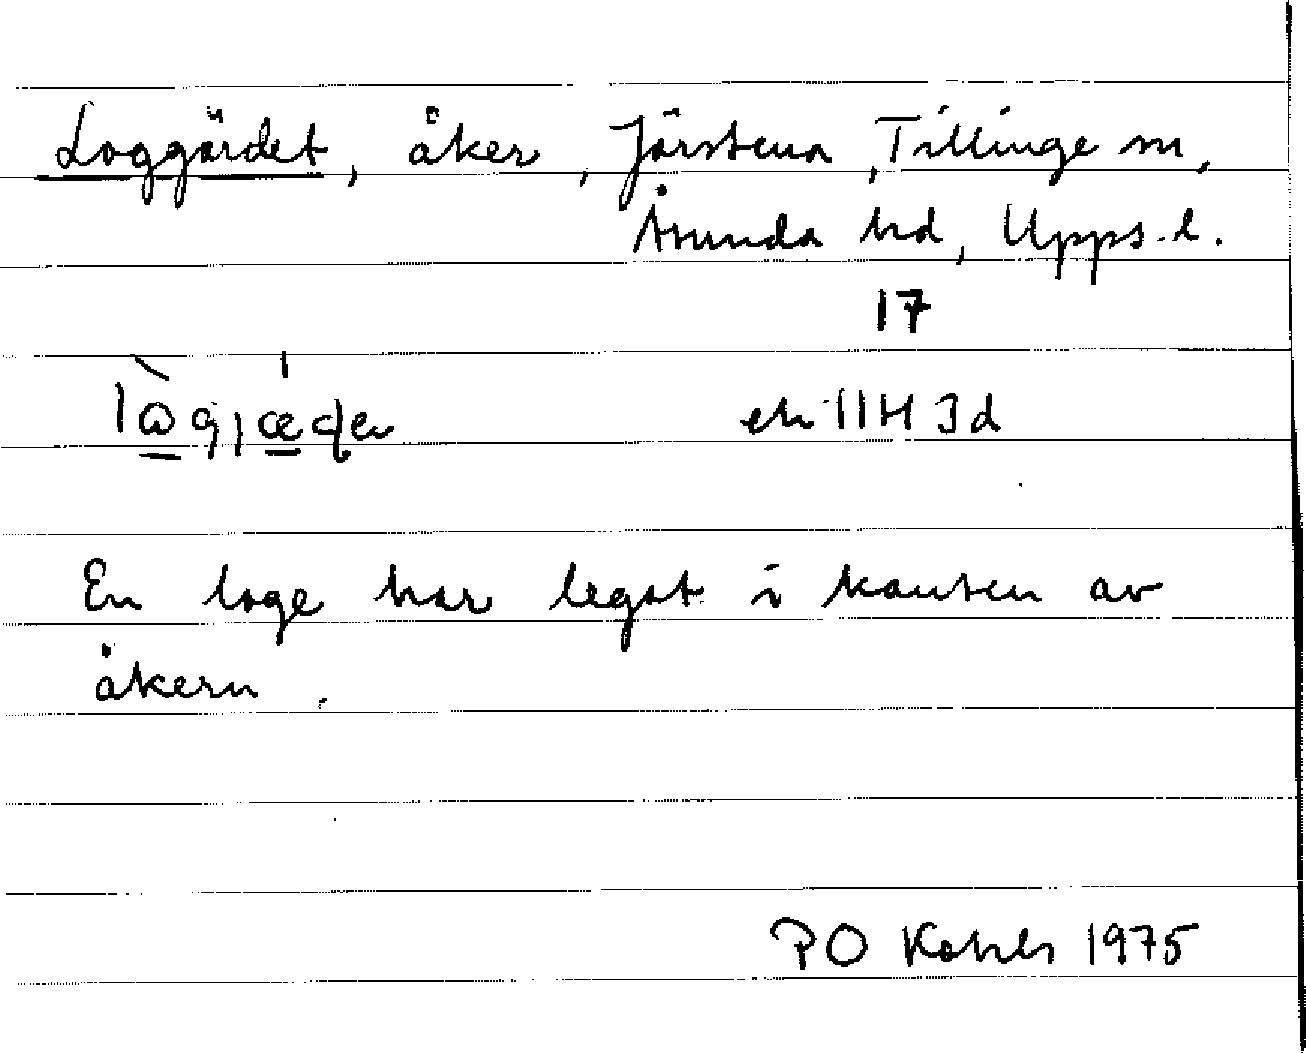 Loggärdet, åker, Järstena, Tillinge sn,
Åsunda hd, Upps. l.
17
ek 11H 3d
En loge har legat i kanten av
åkern.
PO
1975